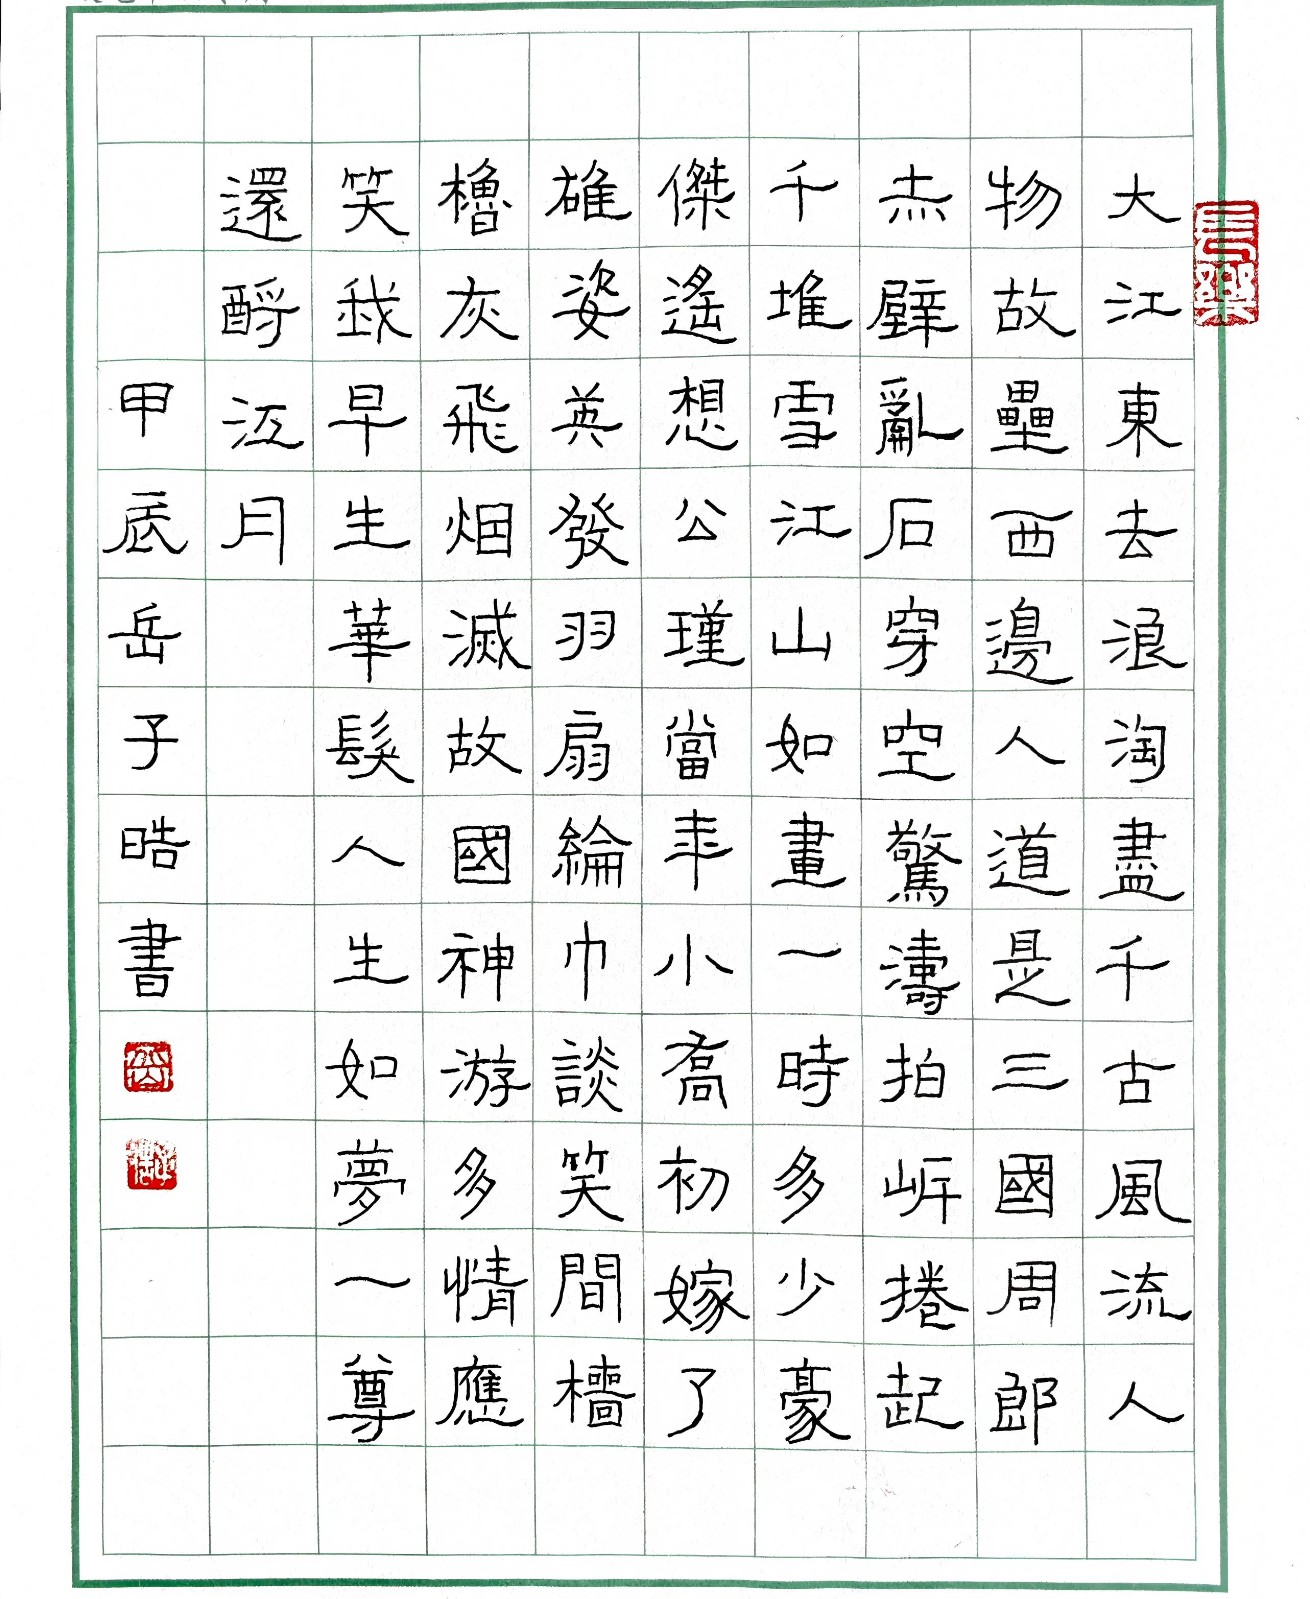 長樂
大江東去浪淘盡千古風流人
物故壘西邊人道是三國周郎
赤壁亂石穿空驚濤拍岸捲起
千堆雪江山如畫一時多少豪
傑遙想公瑾當年小喬初嫁了
雄姿英發羽扇綸巾談笑間檣
櫓灰飛烟滅故國神游多情應
笑我早生華髮人生如夢一尊
還酹江月
甲辰岳子晧書